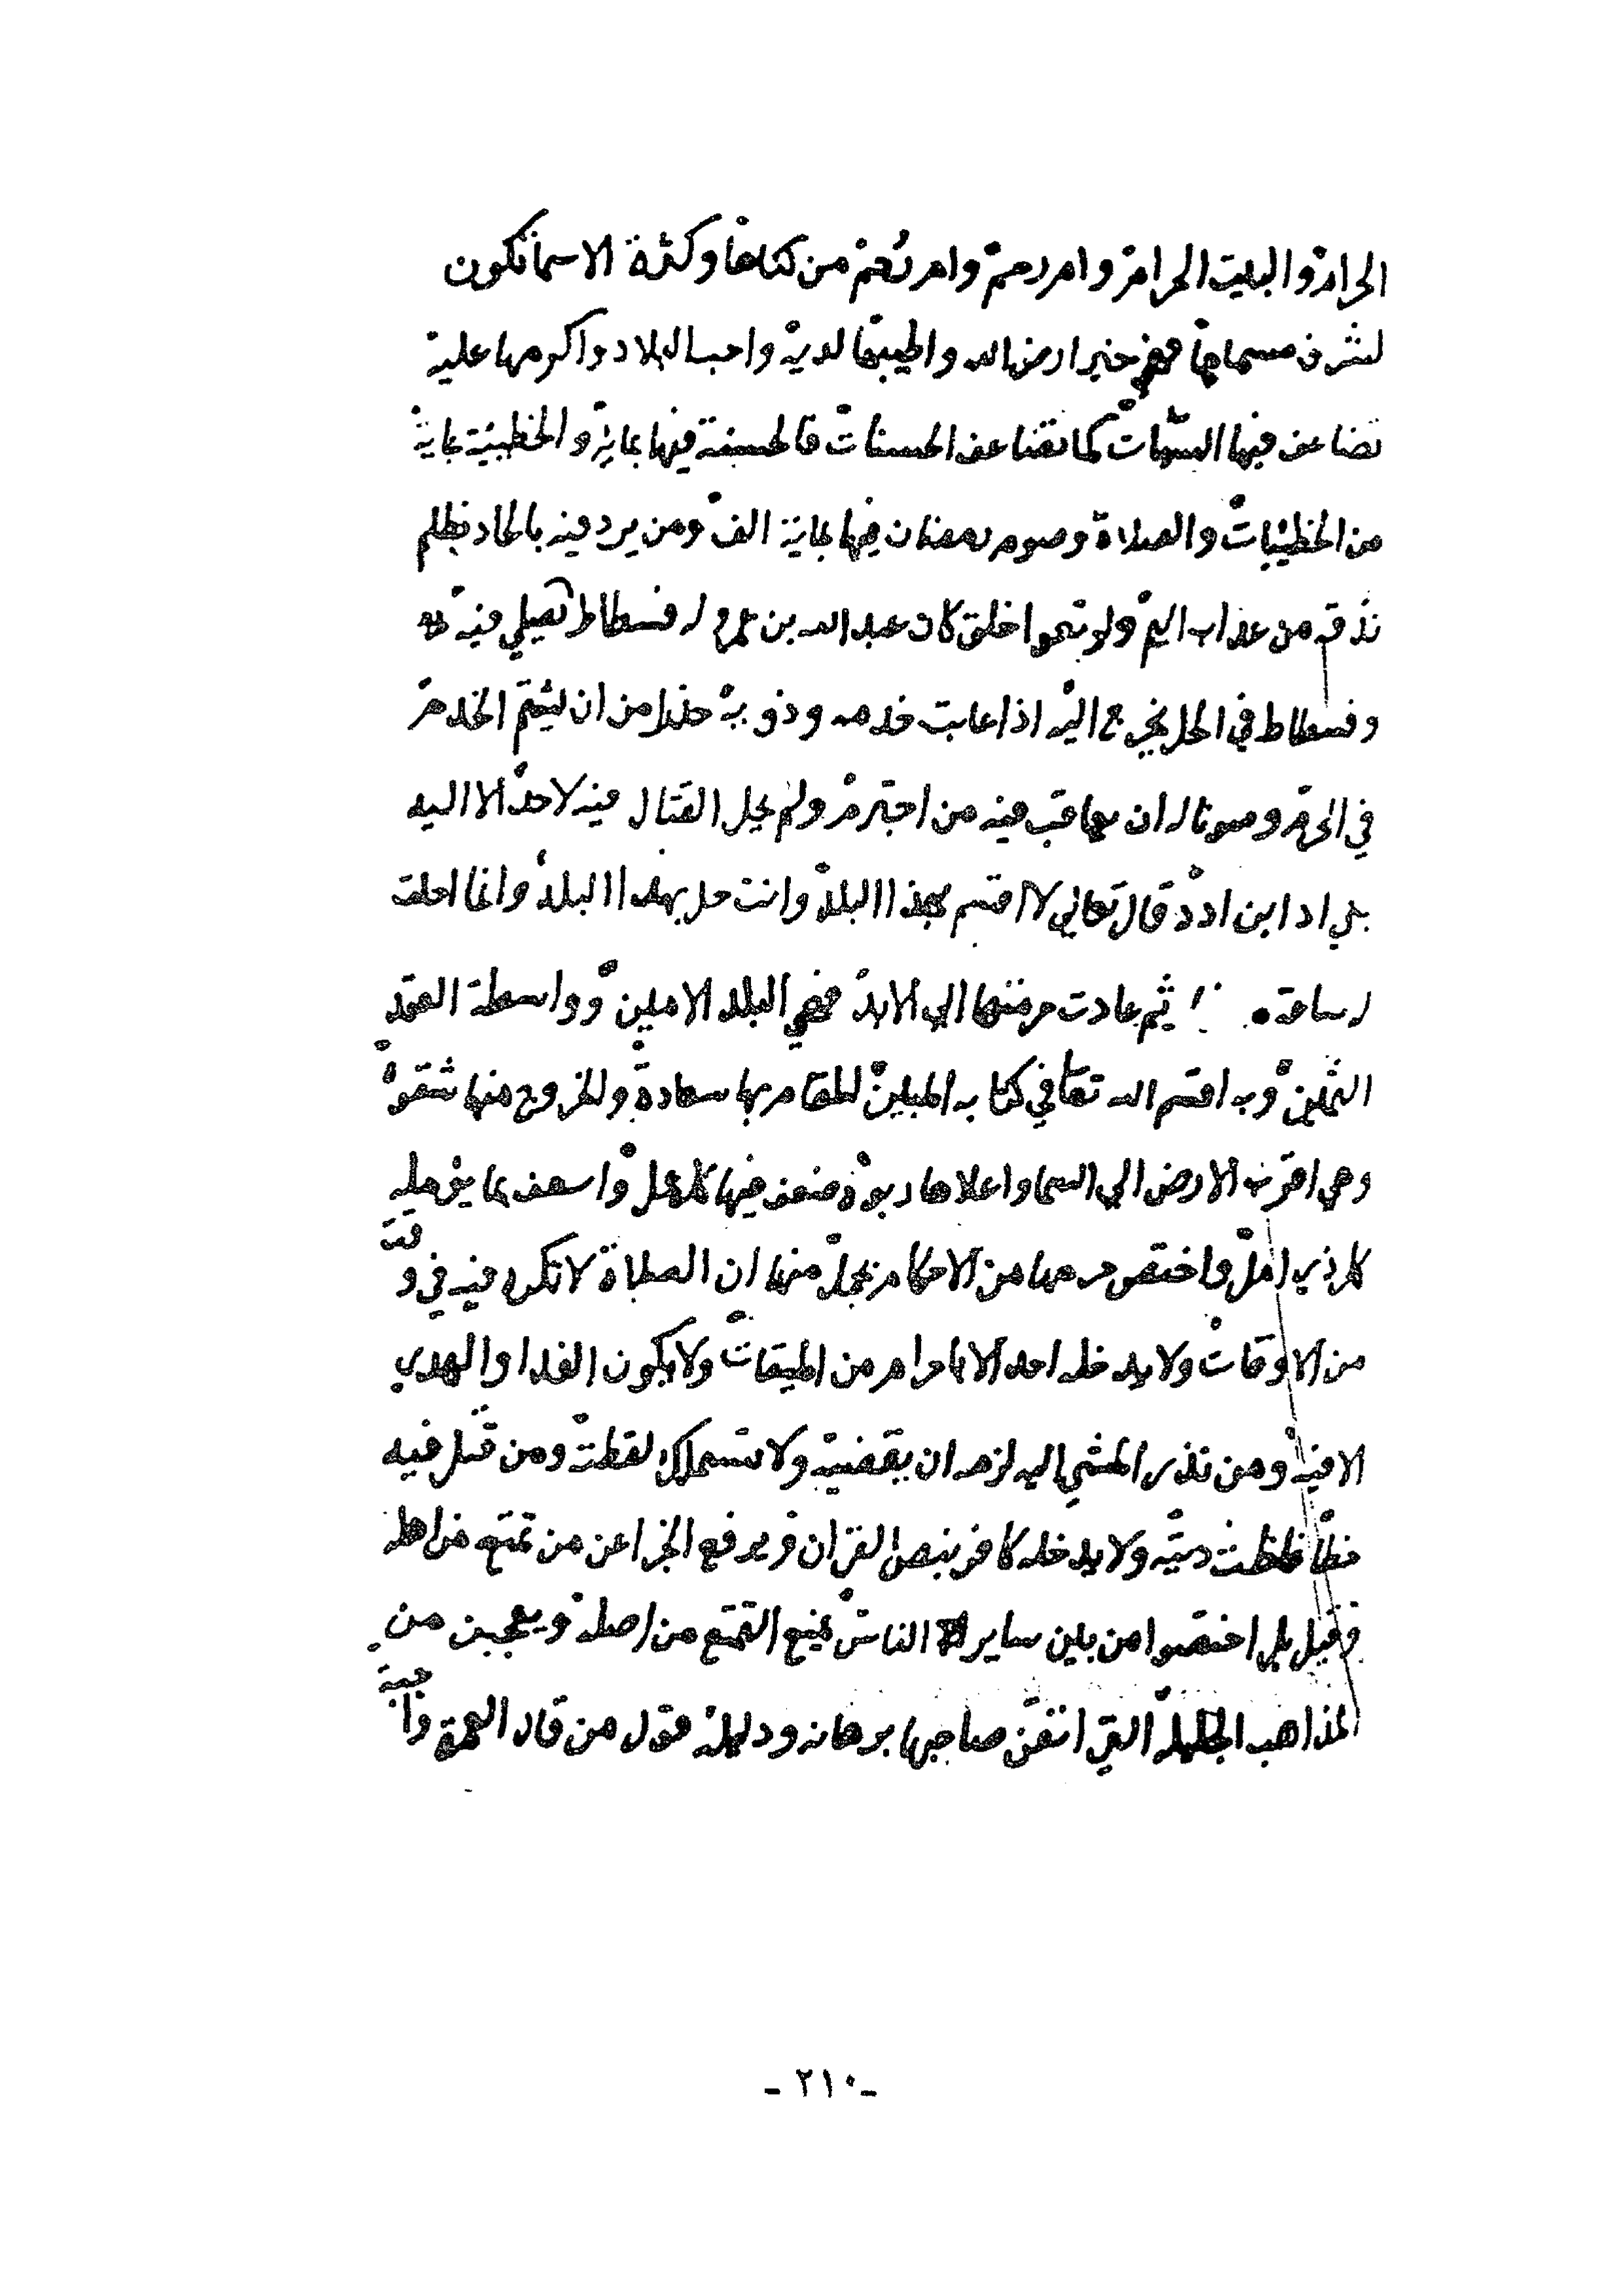 الحرام والبيت الحرام وام رحم وام زحم من كناها وكثرة الاسما تكون
لشرف مسماها فهي خير ارض الله واطيبها لديه واحب البلاد واكرمها عليه
تضاعف فيها السيّات كما تضاعف الحسنات فالحسنة فيها بماية والخطيئة بماية
من الخطيئات والصلاة وصوم رمضان فيها بماية الف ومن يرد فيه بالحاد بظلم
نذقه من عذاب اليم كان عبد الله بن عمرو له فسطاط يصلي فيه
وفسطاط في الحل يخرج اليه اذا عاتب خدمه وذويه حذرا من ان يشتم الخدم
في الحرم وصونا له ان يعاقب فيه من اجترم ولم يحل القتال فيه لاحد الا اليه
قال تعالي لا اقسم بهذا البلد وانت حل بهذا البلد وانما احلت
له ساعة ثم عادت حرمتها الي الابد فهي البلد الامين وواسطة العقد
الثمين وبه اقسم الله تعا في كتابه المبين للمقام بها سعادة وللخروج منها شقوة
وهي اقرب الارض الي السما واعلاها ربوة ضعف فيها كل عمل واسعف بما يؤمله
كل ذي امل واختص حرمها من الاحكام بجمل منها ان الصلاة لا تكره فيه في وقت
من الاوقات ولا يدخله احد الا باحرام من الميقات ولا يكون الفدا والهدي
الا فيه ومن نذر المشي اليه لزمه ان يقضيه ولا تستملك لقطته ومن قتل فيه
خطأ غلظت ديته ولا يدخله كافر بنص القران ويرفع الجزا عن من تمتع من اهله
وقيل بل اختصوا من بين ساير الناس بمنع التمتع من اصله ويعجبن من
المذاهب الجليلة التي اتقن صاحبها برهانه ودليله قول من قال العمرة واجبة
- ٢١٠ -